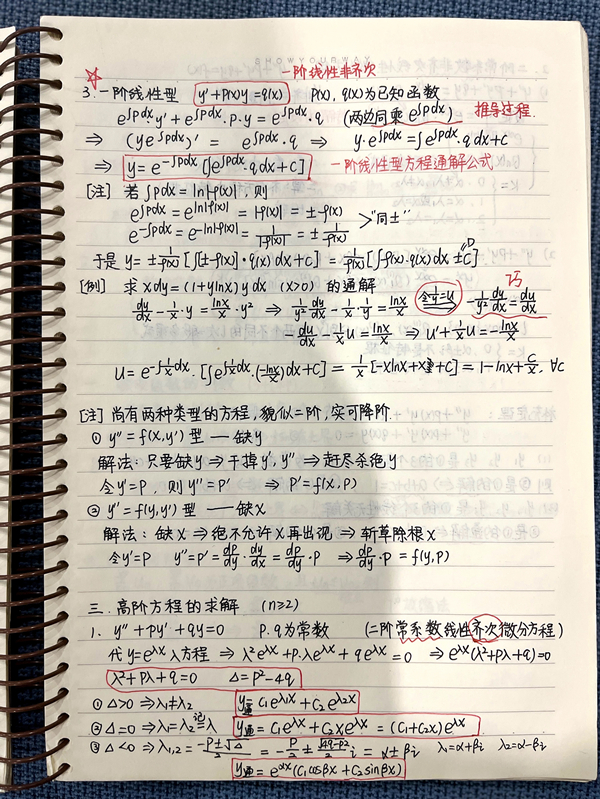 一阶线性非齐次
3.一阶线性型 y'+p(x)y=q(x) p(x), q(x)为已知函数
e^{∫pdx}·y'+e^{∫pdx}·p·y=e^{∫pdx}·q (两边同乘 e^{∫pdx}) 推导过程
⇒ (ye^{∫pdx})' = e^{∫pdx}·q ⇒ y·e^{∫pdx}=∫e^{∫pdx}·q dx+C
⇒ y=e^{-∫pdx}[∫e^{∫pdx}·q dx+C] 一阶线性型方程通解公式
[注] 若∫pdx=ln|f(x)|,则
e^{∫pdx}=e^{ln|f(x)|}=|f(x)|=±f(x)
e^{-∫pdx}=e^{-ln|f(x)|}=1/|f(x)|=±1/f(x) >"同±"
于是 y=±1/f(x)[∫[±f(x)]·q(x)dx+C]=1/f(x)[∫f(x)·q(x)dx±C] "D
[例] 求 xdy=(1+ylnx)ydx (x>0) 的通解 巧
dy/dx-1/x·y=lnx/x·y² ⇒ 1/y² dy/dx-1/x·1/y=lnx/x 令1/y=u -1/y² dy/dx=du/dx
-du/dx-1/x u=lnx/x ⇒ u'+1/x u=-lnx/x
u=e^{-∫1/x dx}·[∫e^{∫1/x dx}·(-lnx/x)dx+C]=1/x[-xlnx+x+C]=1-lnx+C/x, ∀C
[注] 尚有两种类型的方程,貌似二阶,实可降阶
① y''=f(x,y')型 — 缺y
解法:只要缺y⇒干掉y',y''⇒赶尽杀绝y
令y'=P,则y''=P' ⇒ P'=f(x,P)
② y''=f(y,y')型 — 缺x
解法:缺x⇒绝不允许x再出现⇒斩草除根x
令y'=P y''=P'=dp/dy·dy/dx=dp/dy·P ⇒dp/dy·P=f(y,P)
三.高阶方程的求解 (n≥2)
1. y''+py'+qy=0 P.q为常数 (二阶常系数线性齐次微分方程)
代y=e^{λx} λ方程 ⇒ λ²e^{λx}+P·λe^{λx}+qe^{λx}=0 ⇒e^{λx}(λ²+Pλ+q)=0
λ²+Pλ+q=0 Δ=P²-4q
① Δ>0⇒λ₁≠λ₂ y通=C₁e^{λ₁x}+C₂e^{λ₂x}
② Δ=0⇒λ₁=λ₂ 记= λ y通=C₁e^{λx}+C₂xe^{λx}=(C₁+C₂x)e^{λx}
③ Δ<0⇒λ₁,₂=(-P±√Δ)/2=-P/2±(√(4q-p²)/2)i=α±βi λ₁=α+βi λ₂=α-βi
y通=e^{αx}(C₁cosβx+C₂sinβx)